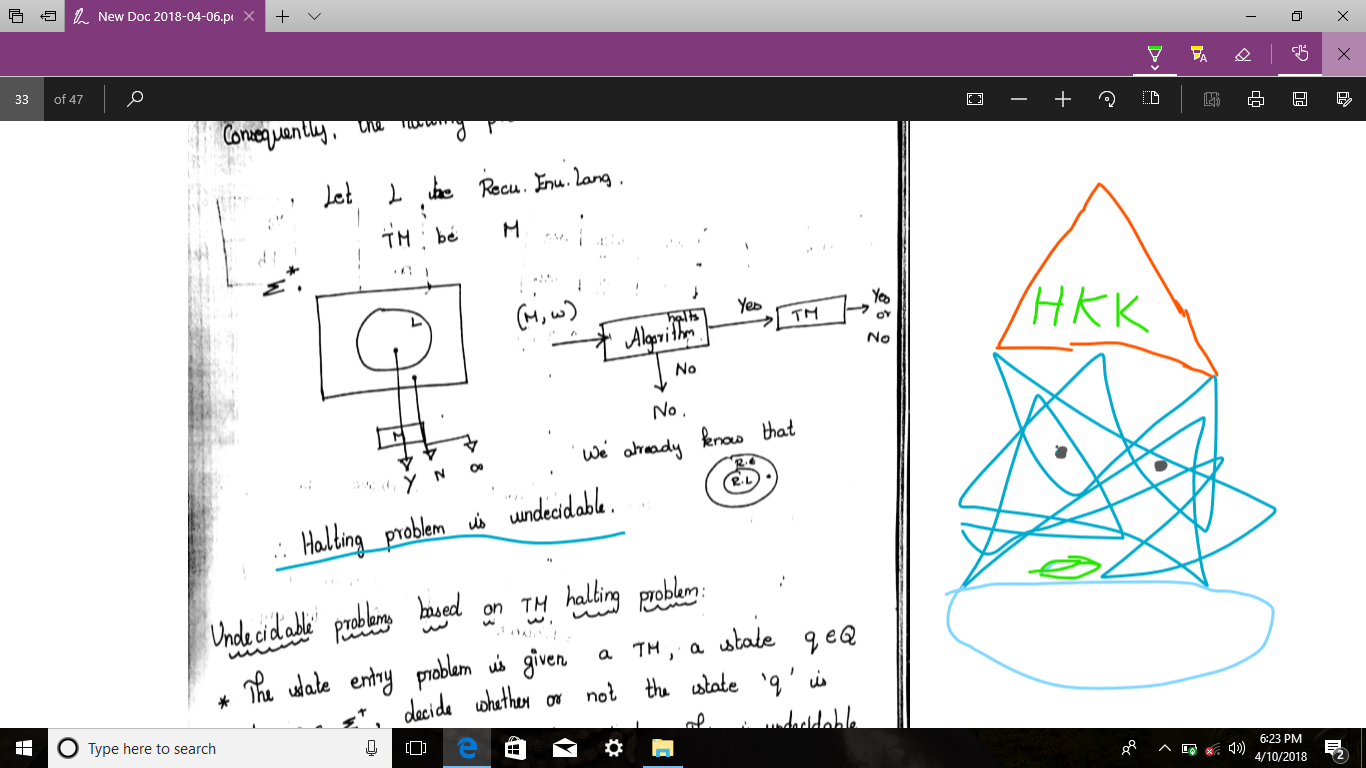 New Doc 2018-04-06.pc
33 of 47
Consequently, the halting
Let L be Recu. Enu. Lang.
TM be M
Σ*.
L
M
Y N ∞
(M, w)
halts
Algorithm
Yes
TM
Yes
or
No
No
No.
We already know that
R.E
R.L
∴ Halting problem is undecidable.
Undecidable problems based on TM halting problem:
* The state entry problem is given a TM, a state q ∈ Q
Σ+, decide whether or not the state 'q' is
undecidable
HKK
Type here to search
6:23 PM
4/10/2018
2